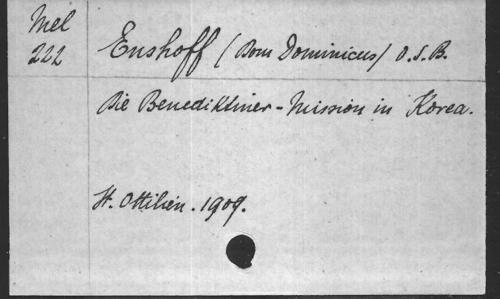 Mel
222
Enshoff (Dom Dominicus) O.S.B.
Die Benediktiner-Mission in Korea.
St. Ottilien. 1909.